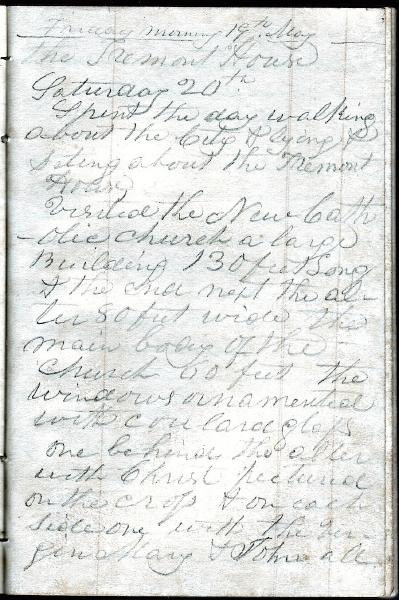 Friday morning 19th May
the Tremont House
Saturday 20th
Spent the day walking
about the City & lying &
siting about the Tremont
House
Visited the New Cath
-olic Church a large
Building 130 feet long
& the end next the al-
ter 80 feet wide the
main body of the
Church 60 feet the
windows ornamented
with coulard glass
one behind the alter
with Christ pictured
on the cross & on each
side one with the Ver-
gin Mary & John all